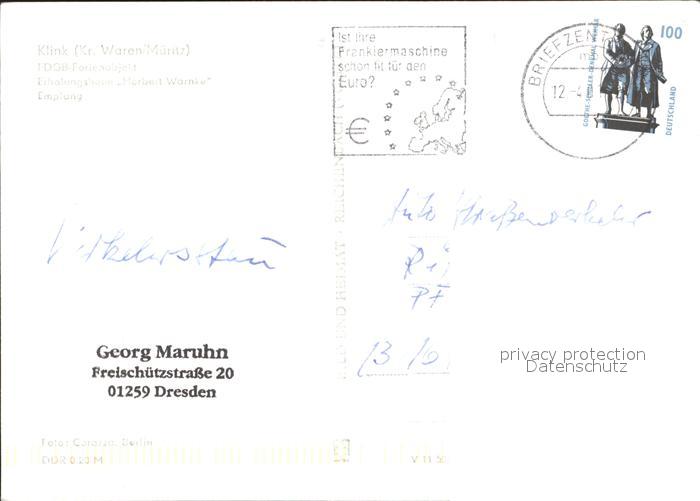 Klink (Kr. Waren/Müritz)
FDGB-Ferienobjekt
Erholungsheim „Herbert Warnke"
Empfang
Ist Ihre
Frankiermaschine
schon fit für den
Euro?
€
BRIEFZENT
12.-4
100
GOETHE-SCHILLER-DENKMAL WEIMAR
DEUTSCHLAND
BILD UND HEIMAT · REICHENBACH
Auto Straßenverkehr
PF
Georg Maruhn
Freischützstraße 20
01259 Dresden
privacy protection
Datenschutz
Foto: Corazza, Berlin
DDR 0.20 M
V 11 50